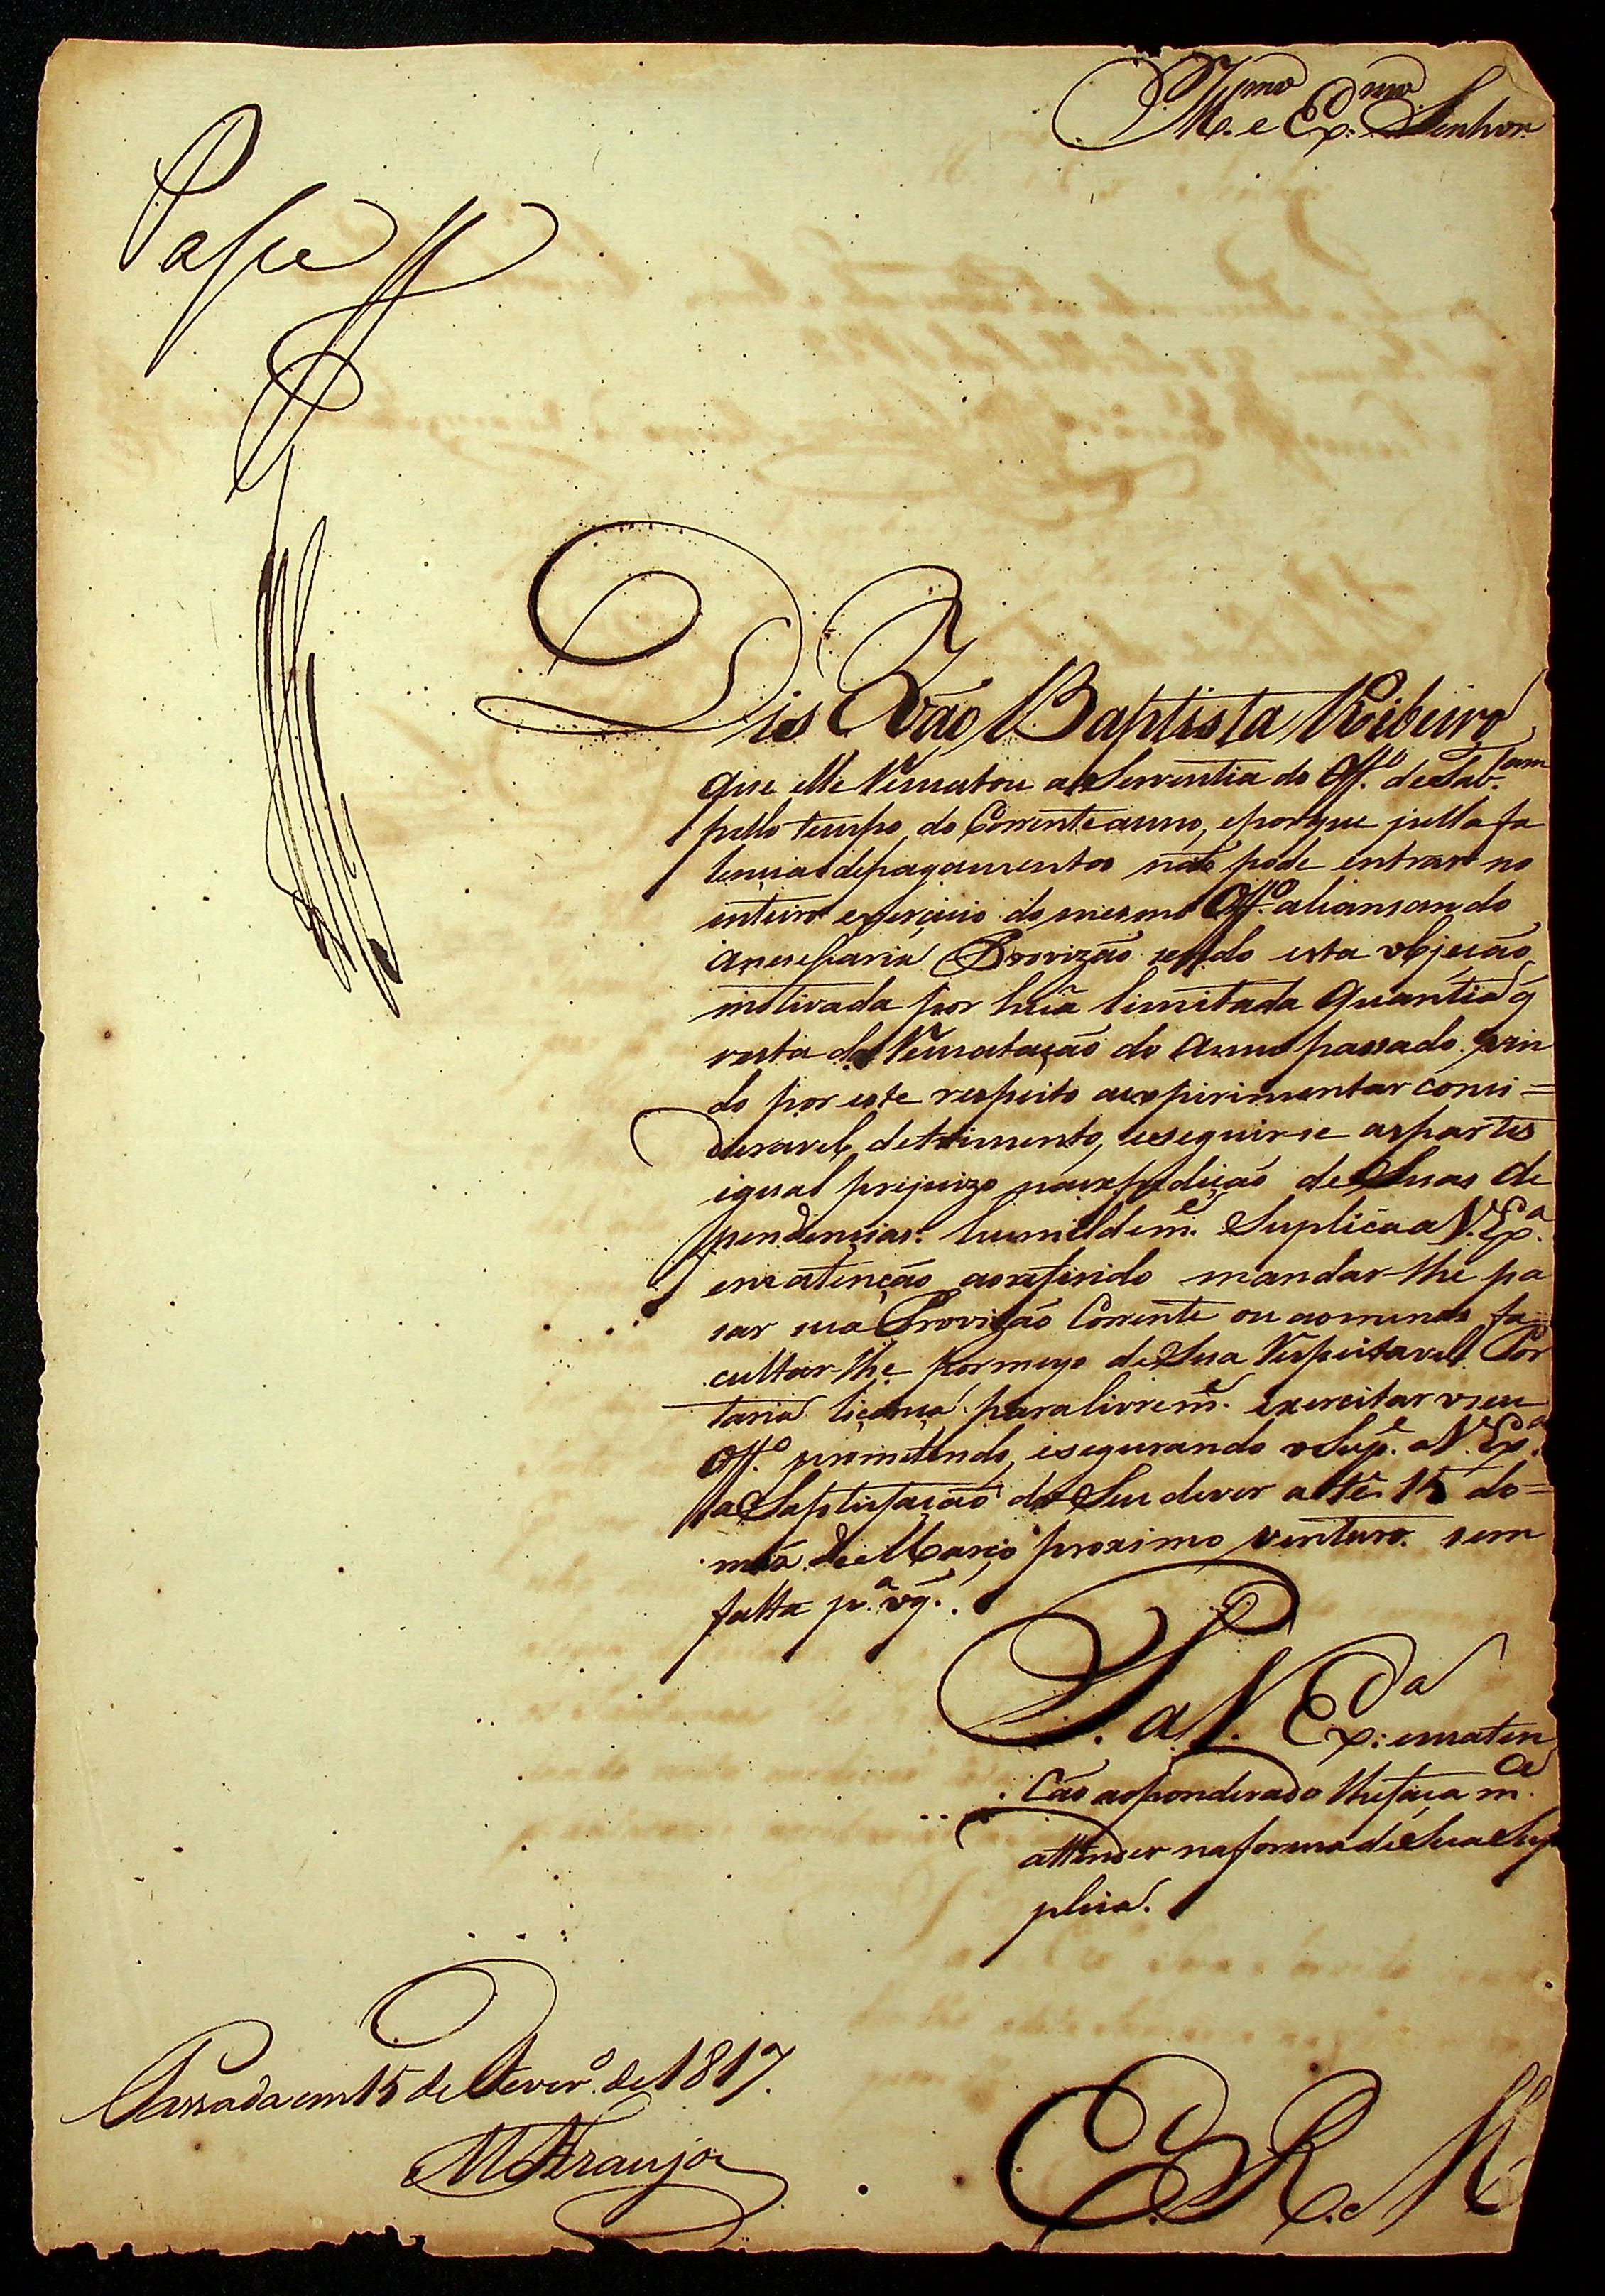 Ill.mo e Ex.mo Senhor
Passe
Dis João Baptista Ribeiro
que elle Rematou a Serventia do Off.o de Tab.am
pello tempo do Corrente anno, e porque pella fa
lencia de pagamentos não pode entrar no
inteiro exercicio do mesmo Off.o aliansando
a necessaria Provizão sendo esta objecão
motivada por huã limitada quantia q̃
resta da Rematação do Anno passado. vin
do por este respeito a expirimentar consi=
deravel detrimento, e seguir-se as partes
igual prejuizo na expedicão de Suas de
pendencias: humildem.e Suplica a V. Ex.a
em atenção ao referido mandar-lhe pa
sar sua Provizão Corrente ou ao menos fa=
cultar-lhe por meyo de Sua Respeitavel Por
taria licença para livrem.e exercitar o seu
Off.o prometendo, e segurando o Sup.e a V. Ex.a
a Satisfacão do Seu dever athé 15 do=
mes de Março proximo venturo. sem
falta p.a oq̃.
P. a V. Ex.a em aten
Cão ao ponderado lhe faça m.ce
attender na forma de Sua Sup
plica.
Passada em 15 de Fever.o de 1817.
M Araujo
E. R. M.ce